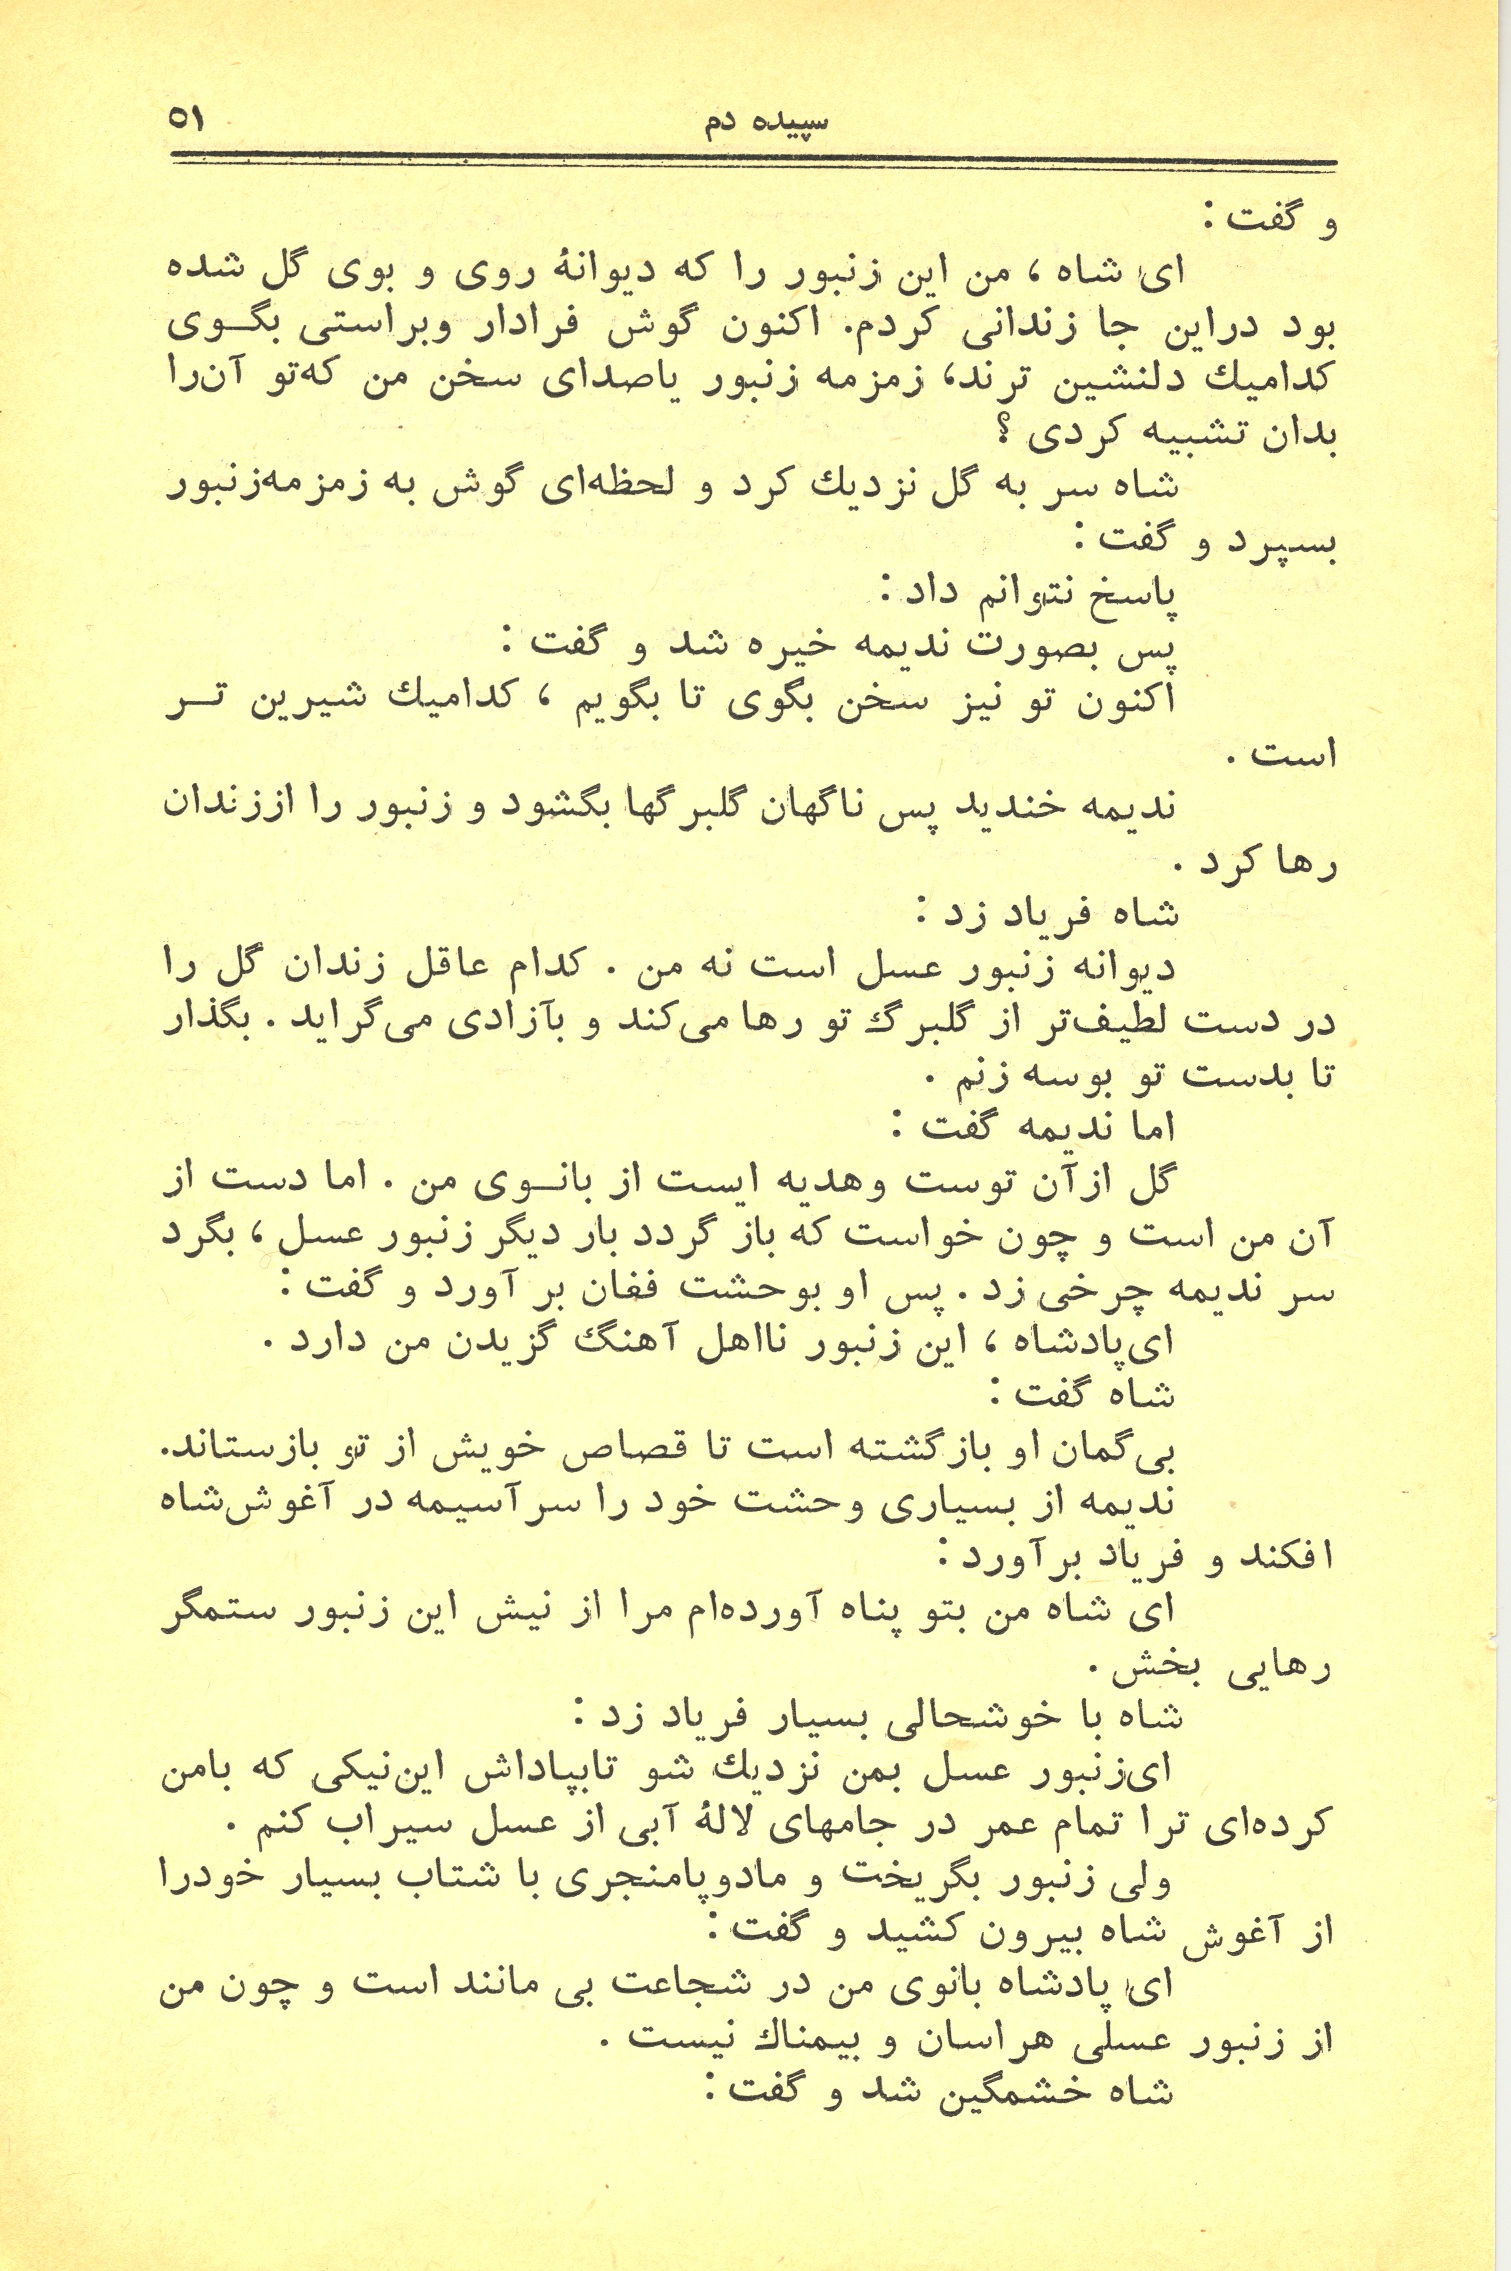 سپیده دم ۵۱
و گفت :
ای شاه ، من این زنبور را که دیوانهٔ روی و بوی گل شده
بود دراین جا زندانی کردم. اکنون گوش فرادار وبراستی بگـوی
کدامیك دلنشین ترند، زمزمه زنبور یاصدای سخن من که‌تو آن‌را
بدان تشبیه کردی ؟
شاه سر به گل نزدیك کرد و لحظه‌ای گوش به زمزمه‌زنبور
بسپرد و گفت :
پاسخ نتوانم داد :
پس بصورت ندیمه خیره شد و گفت :
اکنون تو نیز سخن بگوی تا بگویم ، کدامیك شیرین تـر
است .
ندیمه خندید پس ناگهان گلبرگها بگشود و زنبور را اززندان
رها کرد .
شاه فریاد زد :
دیوانه زنبور عسل است نه من . کدام عاقل زندان گل را
در دست لطیف‌تر از گلبرگ تو رها می‌کند و بآزادی می‌گراید . بگذار
تا بدست تو بوسه زنم .
اما ندیمه گفت :
گل ازآن توست وهدیه ایست از بانـوی من . اما دست از
آن من است و چون خواست که باز گردد بار دیگر زنبور عسل ، بگرد
سر ندیمه چرخی زد . پس او بوحشت فغان بر آورد و گفت :
ای‌پادشاه ، این زنبور نااهل آهنگ گزیدن من دارد .
شاه گفت :
بی‌گمان او بازگشته است تا قصاص خویش از تو بازستاند.
ندیمه از بسیاری وحشت خود را سرآسیمه در آغوش‌شاه
افکند و فریاد برآورد :
ای شاه من بتو پناه آورده‌ام مرا از نیش این زنبور ستمگر
رهایی بخش .
شاه با خوشحالی بسیار فریاد زد :
ای‌زنبور عسل بمن نزدیك شو تابپاداش این‌نیکی که بامن
کرده‌ای ترا تمام عمر در جامهای لالهٔ آبی از عسل سیراب کنم .
ولی زنبور بگریخت و مادوپامنجری با شتاب بسیار خودرا
از آغوش شاه بیرون کشید و گفت :
ای پادشاه بانوی من در شجاعت بی مانند است و چون من
از زنبور عسلی هراسان و بیمناك نیست .
شاه خشمگین شد و گفت :